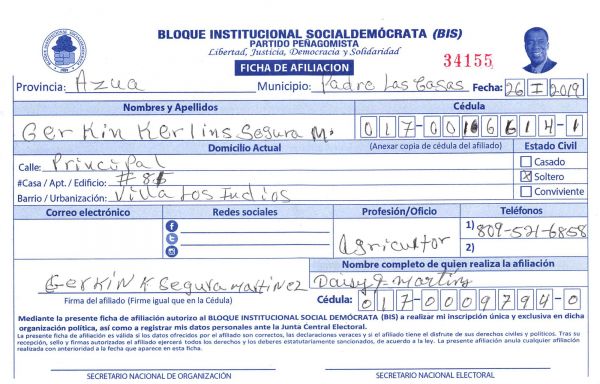 BLOQUE INSTITUCIONAL SOCIALDEMÓCRATA (BIS)
PARTIDO PEÑAGOMISTA
Libertad, Justicia, Democracia y Solidaridad
34155
FICHA DE AFILIACION
Provincia: Azua Municipio: Padre Las Casas Fecha: 26 I 2019
Nombres y Apellidos Cédula
Gerkin Kerlins Segura M. 017-0016614-1
Domicilio Actual (Anexar copia de cédula del afiliado) Estado Civil
Calle: Principal Casado
#Casa / Apt. / Edificio: #85 X Soltero
Barrio / Urbanización: Villa Los Indios Conviviente
Correo electrónico Redes sociales Profesión/Oficio Teléfonos
Agricultor 1) 809-521-6858
2)
Nombre completo de quien realiza la afiliación
Gerkin K Segura Martinez Daisy J. Martins
Firma del afiliado (Firme igual que en la Cédula) Cédula: 017-0009794-0
Mediante la presente ficha de afiliación autorizo al BLOQUE INSTITUCIONAL SOCIAL DEMÓCRATA (BIS) a realizar mi inscripción única y exclusiva en dicha
organización política, así como a registrar mis datos personales ante la Junta Central Electoral.
La presente ficha de afiliación es válida si los datos ofrecidos por el afiliado son correctos, las declaraciones veraces y si el afiliado tiene el disfrute de sus derechos civiles y políticos. Tras su
recepción, sello y firmas autorizados el afiliado ejercerá todos los derechos y los deberes estatutariamente sancionados, de acuerdo a la ley. La presente afiliación anula cualquier afiliación
realizada con anterioridad a la fecha que aparece en esta ficha.
SECRETARIO NACIONAL DE ORGANIZACIÓN SECRETARIO NACIONAL ELECTORAL